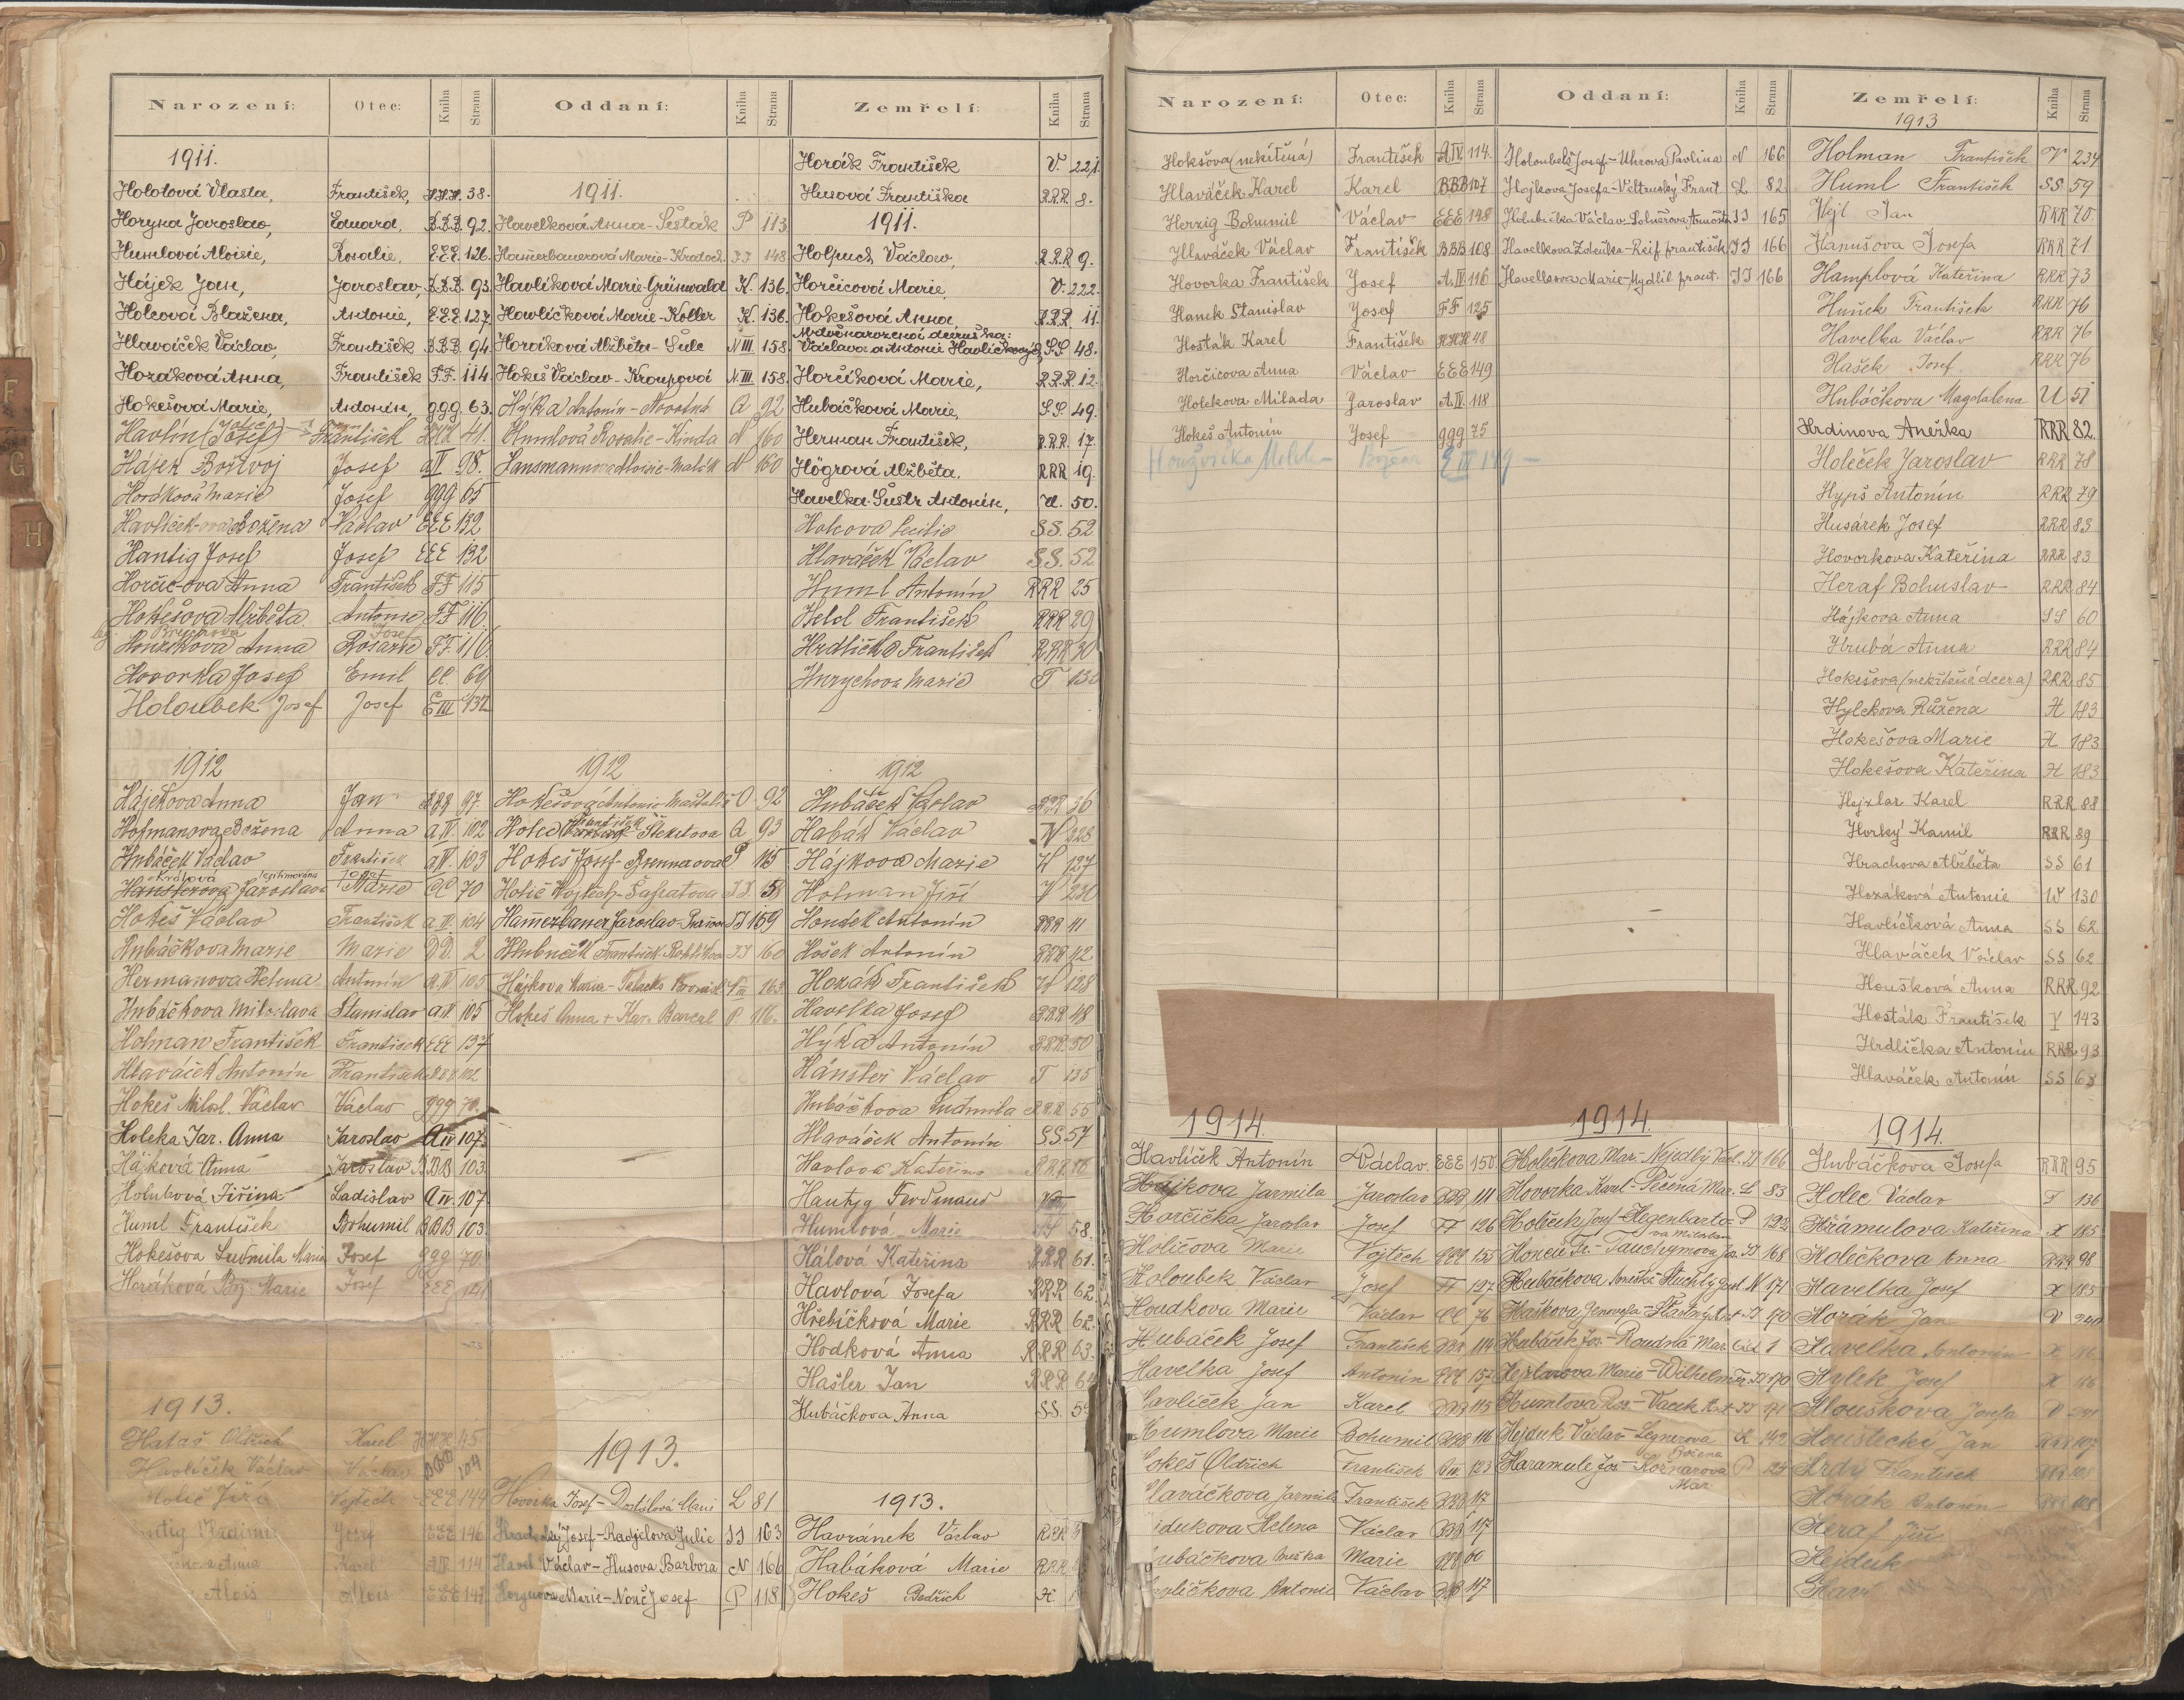 Narození: Otec: Kniha Strana Oddaní: Kniha Strana Zemřelí: Kniha Strana
1911.
Holotová Vlasta, František, H.H.H. 38.
Horyna Jaroslav, Eduard, B.B.B. 92.
Humlová Aloisie, Rosalie, E.E.E. 126.
Hájek Jan, Jaroslav, B.B.B. 93.
Holcová Blažena, Antonie, E.E.E. 127.
Hlaváček Václav, František B.B.B. 94.
Horáková Anna, František F.F. 114
Hokešová Marie, Antonín, ggg. 63.
Havlín (Josef) František 41.
Hájek Bořivoj Josef aIV. 98.
Horáková Marie Josef ggg 65
Havlíček-ova Božena Václav EEE 132
Hantig Josef Josef EEE 132
Horčic-ova Anna František FF 115
Hokešova Alžběta Antonie FF 116.
Anna Rosalie FF. 116.
Hovorka Josef Emil CC 69
Holoubek Josef Josef EIII 132
1912
Hájekova Anna Jan BBB 97.
Hofmanova Božena Anna a.IV. 102
Hubáček Václav František aIV. 103
Jaroslava Marie CC 70
Hokeš Václav František a.IV. 104
Hubáčkova Marie Marie DD. 2
Hermanova Helena Antonín a.IV 105
Hubáčkova Miloslava Stanislav aIV. 105
Holman František František EEE 137
Hlaváček Antonín František BBB 102
Hokeš Milosl. Václav Václav ggg 70.
Holcka Jar. Anna Jaroslav AIV 107
Hájková Anna Jaroslav BBB 103
Holubová Jiřina Ladislav AIV. 107
Huml František Bohumil BBB 103
Hokešova Ludmila Maria Josef ggg 70.
Horáková Boj. Marie Josef EEE 141
1913.
Hataš Oldřich Karel HHH 45
Havlíček Václav Václav BBB 104
Jiří Vojtěch EEE 144
Vladimír Josef EEE 146
Anna Karel AIV 114
Alois Alois EEE 147
1911.
Havelková Anna - Šesták P 113
Hamerbauerová Marie - Kratoch. JJ 148
Havlíková Marie - Grünwald K. 136.
Havlíčková Marie - Koller K. 136.
Horáková Alžběta - Šulc N III. 158.
Hokeš Václav - Kroupová N. III. 158.
Hýka Antonín - Novotná A 92
Humlová Rosalie - Kinda N 160
Hansmannova Aloisie - Malík N 160
1912
Hokešová Antonie - Maštalíř O 92
Holec František - Šteketova A 93
Hokeš Josef - P 115
Holič Vojtěch - Šafratova JJ 58
Hamerbauer Jaroslav - JJ 159
Hlubuček František - JJ 160
Hájkova Maria - NIII 163
Hokeš Anna + Kar. Barcal P 116.
1913.
Hovorka Josef - Dostálová Mari L 81
Josef - Radjelova Julie JJ 163
Havel Václav - Husova Barbora N 166
Horynova Marie - Nonč Josef P 118
Horák František V. 221.
Husová Františka RRR 8.
1911.
Holfuch Václav, R.R.R 9.
Horčicová Marie, V. 222.
Hokešová Anna R.R.R. 11.
Mrtvěnarozená dceruška:
Václava a Antonie Havlíčkových S.S. 48.
Horčíková Marie, R.R.R. 12.
Hubáčková Marie, S.S. 49.
Herman František, R.R.R. 17.
Högrová Alžběta. RRR 19.
Havelka-Šustr Antonín, U. 50.
Holcova Cecilie S.S. 52
Hlaváček Václav S.S. 52
Huml Antonín RRR 25
Held František RRR 29
Hrdlička František RRR 30
Hurychova Marie T 132
1912
Hubáček Václav RRR 36
Habák Václav V 228
Hájkova Marie W 127
Holman Jiří V 230
Houdek Antonín RRR 41
Hošek Antonín RRR 42
Horák František W 128
Havelka Josef RRR 48
Hýka Antonín RRR. 50
Hánsler Václav T 135
Hubáčkova Ludmila R.R.R. 55
Hlaváček Antonín S.S. 57
Havlova Kateřina RRR
Hantyg Ferdinand
Humlová Marie SS 58.
Hálová Kateřina RRR 61.
Havlová Josefa RRR 62
Hřebíčková Marie RRR 62.
Hodková Anna RRR 63.
Hašler Jan RRR 64
Hubáčkova Anna SS. 5
1913.
Havránek Václav RRR
Habáková Marie RRR
Hokeš Bedřich H
Narození: Otec: Kniha Strana Oddaní: Kniha Strana Zemřelí: Kniha Strana
Hokšova (nekřtěná) František AIV. 114.
Hlaváček Karel Karel BBB 107
Herzig Bohumil Václav EEE 148
Hlaváček Václav František BBB 108
Hovorka František Josef A.IV. 116
Hanek Stanislav Josef FF 125
Hosták Karel František HHH 48
Horčicova Anna Václav EEE 149
Holekova Milada Jaroslav A.IV. 118
Hokeš Antonín Josef ggg 75
Houžvička EIII 149
Holoubek Josef - Uhrova Pavlina N 166
Hojkova Josefa - Veltruský Frant L 82
Holubička Václav JJ 165
Havelkova - Reif František JJ 166
Marie - Mydlil Frant. JJ 166
1913
Holman František V 234
Huml František SS 59
Hejl Jan RRR 70
Hanušova Josefa RRR 71
Hamplová Kateřina RRR 73
Huňek František RRR 76
Havelka Václav RRR 76
Hašek Josef RRR 76
Hubáčkova Magdalena U 51
Hrdinova Anežka RRR 82.
Holeček Jaroslav RRR 78
Hypš Antonín RRR 79
Husárek Josef RRR 83
Hovorkova Kateřina RRR 83
Heraf Bohuslav RRR 84
Hájkova Anna SS 60
Hrubá Anna RRR 84
Hokešova (nekřtěná dcera) RRR 85
Hylckova Růžena H 183
Hokešova Marie H 183
Hokešova Kateřina H 183
Hejzlar Karel RRR 88
Horký Kamil RRR 89
Hrachova Alžběta SS 61
Hozáková Antonie W 130
Havlíčková Anna SS 62
Hlaváček Václav SS 62
Houšková Anna RRR 92
Hosták František Y 143
Hrdlička Antonín RRR 93
Hlaváček Antonín SS 63
1914.
Havlíček Antonín Václav. EEE 150.
Hájkova Jarmila Jaroslav BBB 111
Horčička Jaroslav Josef FF 126
Holičova Marie Vojtěch EEE 155
Holoubek Václav Josef FF 127
Houdkova Marie Václav CC 76
Hubáček Josef František BBB 114
Havelka Josef Antonín EEE 157
Havlíček Jan Karel BBB 115
Humlova Marie Bohumil BBB 116
Hokeš Oldřich František AIV 123
Hlaváčkova Jarmila František BBB 117
Helena Václav BBB 117
Hubáčkova Anežka Marie 60
Havlíčkova Antonie Václav BBB 117
1914.
Holičkova Mar. - Nejedlý Václ. JJ 166
Hovorka Karel - Pěčená Mar. L 83
Holíček Josef - Hegenbarto- P 122
va Miloslava
Honců Fr. - Tauchymova JJ 168
Hubáčkova Anežka - Stuchlý N 171
Haškova Genovefa - Šťastný Ant. JJ 170
Hubáček Jos. - Roudná Mar. 1
Hejzlarova Marie - Wilhelm JJ 170
Humlova Ros. - Vacek JJ 171
Hejduk Václav - Legnerova L 142
Božena
Haramule Jos. - Kožnarova P 124
Mar.
1914.
Hubáčkova Josefa RRR 95
Holec Václav T 136
Hřámulova Kateřina X 185
Holečkova Anna RRR 98
Havelka Josef X 185
Horák Jan V 240
Havelka Antonín X 186
Hylek Josef X 186
Hlouškova Josefa V 241
Houstecký Jan RRR 107
Hrdý František RRR 108
Horák Antonín RRR 108
Heraf Jiří
Hejduk
Hav